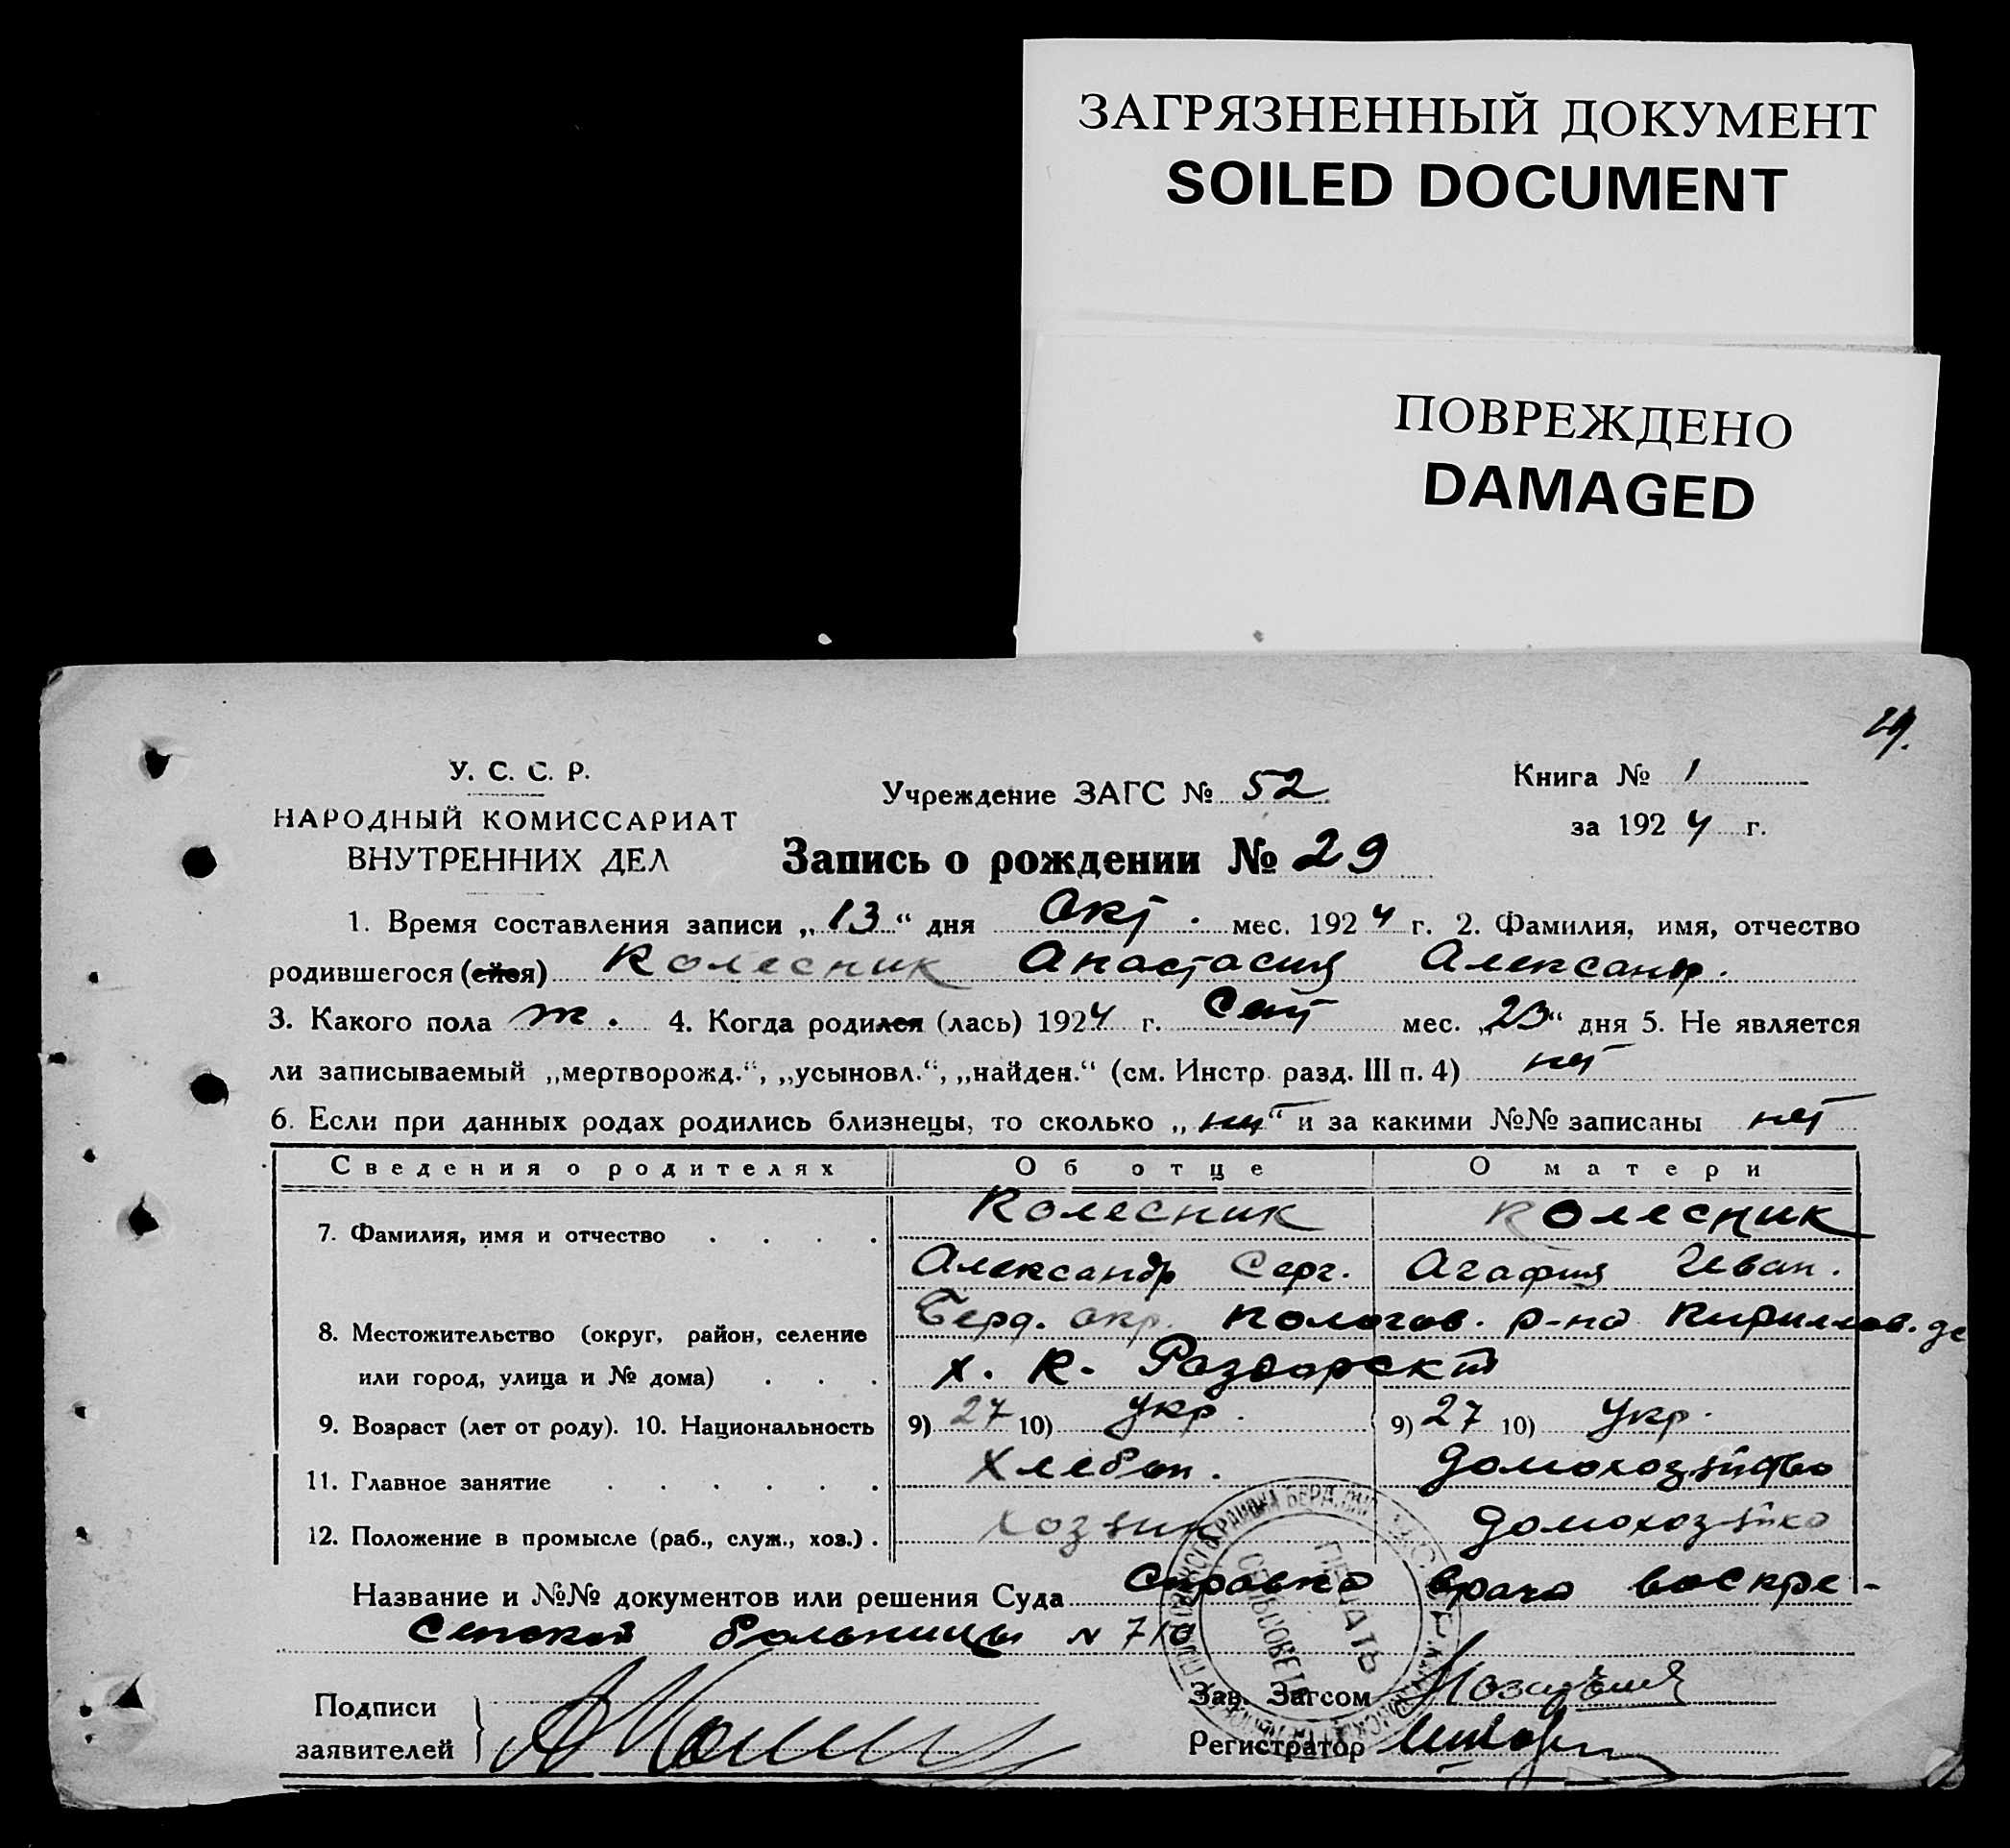 ЗАГРЯЗНЕННЫЙ ДОКУМЕНТ
SOILED DOCUMENT
ПОВРЕЖДЕНО
DAMAGED
29.
У. С. С. Р.
НАРОДНЫЙ КОМИССАРИАТ
ВНУТРЕННИХ ДЕЛ
Учреждение ЗАГС № 52
Книга № 1
за 1924 г.
Запись о рождении № 29
1. Время составления записи „13“ дня Окт. мес. 1924 г. 2. Фамилия, имя, отчество
родившегося (ейся) Колесник Анастасия Александр.
3. Какого пола ж. 4. Когда родился (лась) 1924 г. Сент мес. „23“ дня 5. Не является
ли записываемый „мертворожд.“, „усыновл.“, „найден.“ (см. Инстр. разд. III п. 4) нет
6. Если при данных родах родились близнецы, то сколько „нет“ и за какими №№ записаны нет
Сведения о родителях Об отце О матери
7. Фамилия, имя и отчество . . . . Колесник Колесник
Александр Серг. Агафия Иван.
8. Местожительство (округ, район, селение Берд. окр. р-на Кирилов.
или город, улица и № дома) . . . х. К-
9. Возраст (лет от роду). 10. Национальность 9) 27 10) Укр. 9) 27 10) Укр.
11. Главное занятие . . . . . . Хлебоп. домохозяйство
12. Положение в промысле (раб., служ., хоз.) . хозяин домохозяйка
Название и №№ документов или решения Суда Справка врача Воскре-
сенской больницы № 710
ПЕЧАТЬ
СЕЛЬСОВЕТА
Подписи
заявителей
Зав. Загсом
Регистратор